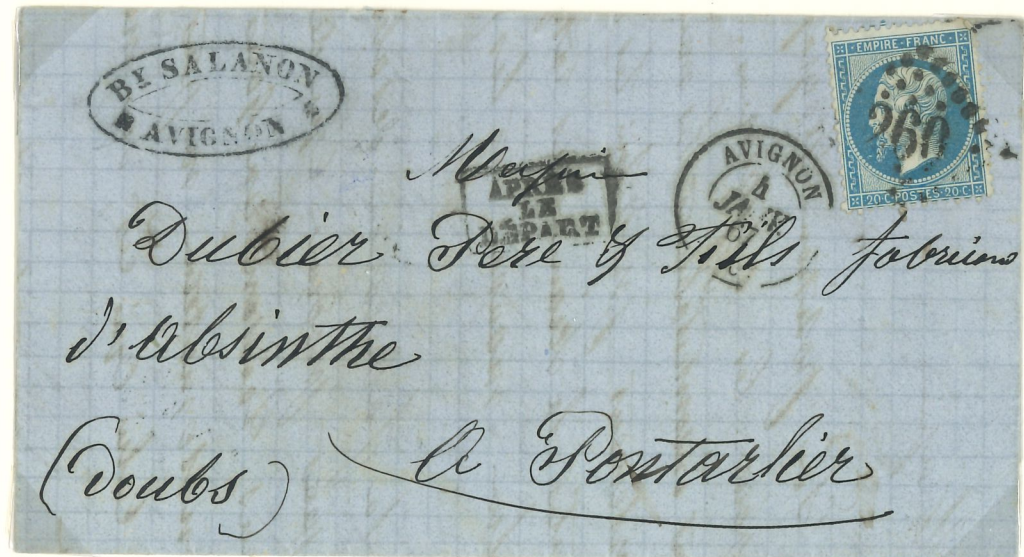 BY. SALANON
AVIGNON
EMPIRE FRANC
260
20·C·POSTES·20·C
AVIGNON
4
JANV
APRÈS
LE
DÉPART
Messieurs
Dubier Pere & Fils fabricans
d'absinthe
A Pontarlier
(Doubs)